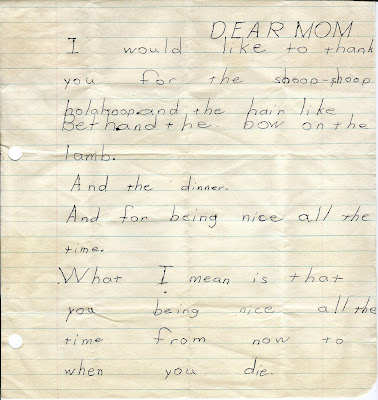 DEAR MOM
I would like to thank
you for the shoop-shoop
holahoop.and the hain like
Beth.and the bow on the
lamb.
And the dinner.
And for being nice all the
time.
What I mean is that
you being nice all the
time from now to
when you die.